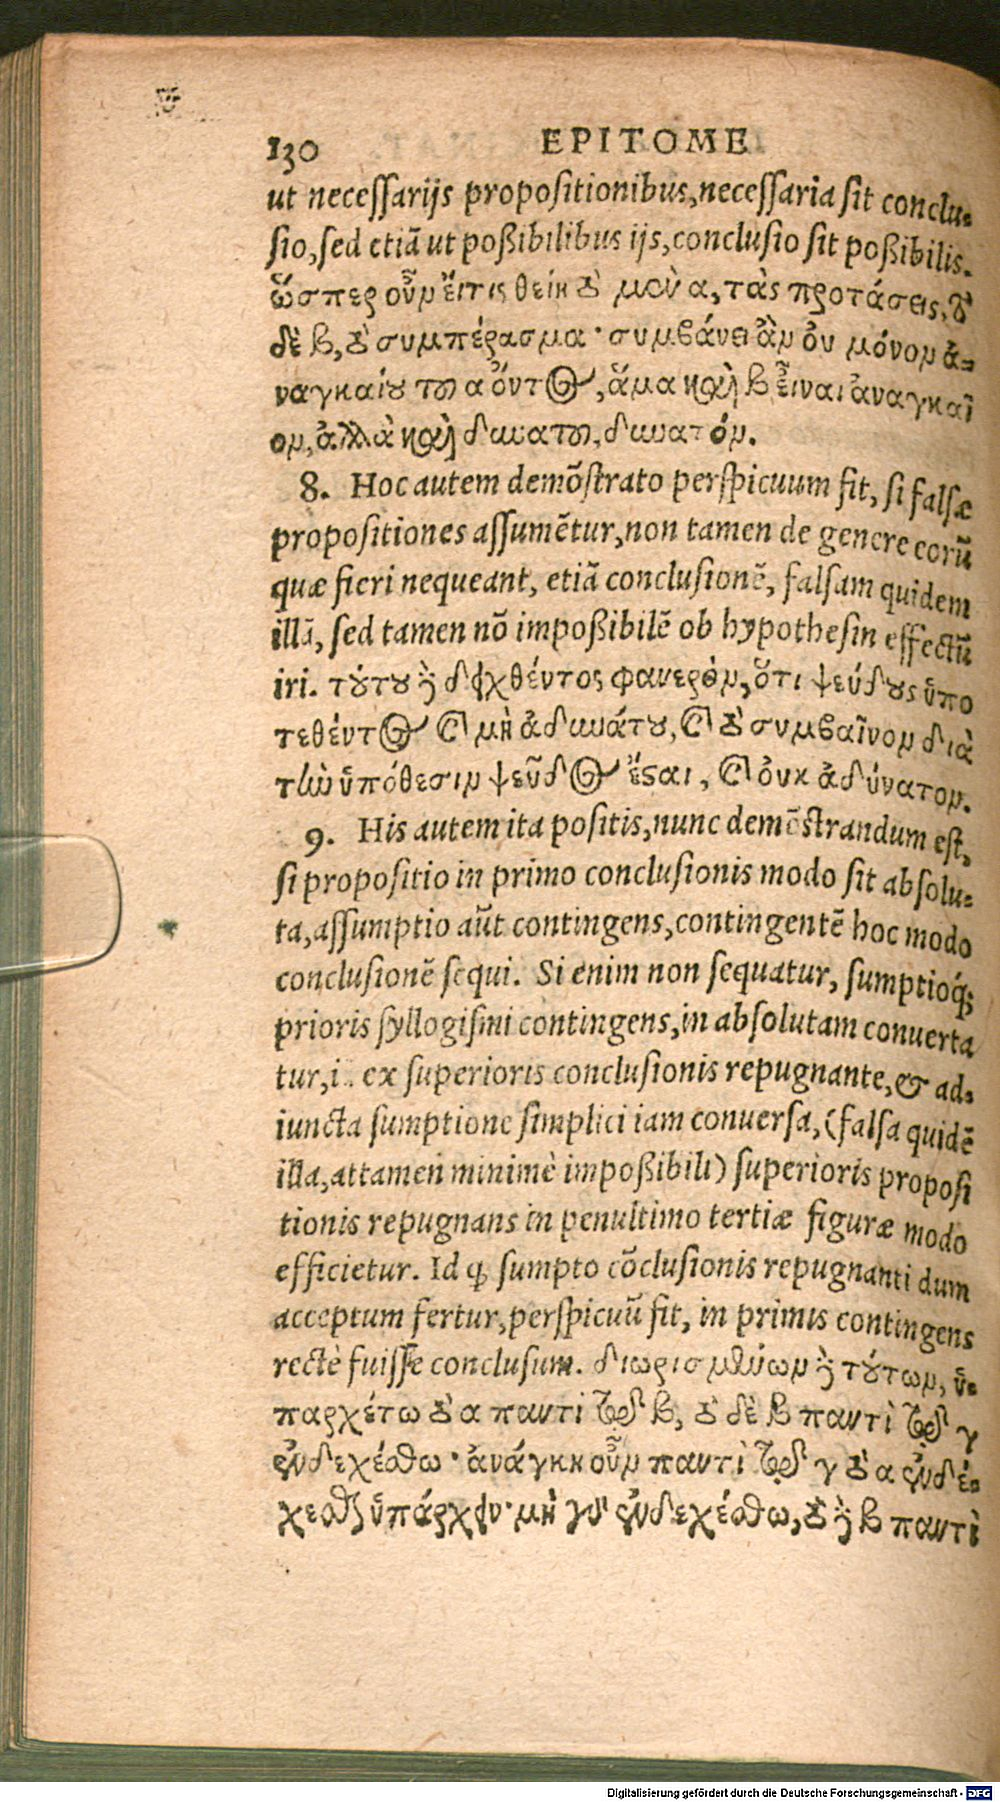 130 EPITOME
ut necessarijs propositionibus, necessaria sit conclu-
sio, sed etiã ut poßibilibus ijs, conclusio sit poßibilis.
ὥσπερ οὖν εἴτις θείη τὸ μὲν α, τὰς προτάσεις, τὸ
δὲ β, τὸ συμπέρασμα· συμβάνει ἂν οὐ μόνον ἀ-
ναγκαίου τοῦ α ὄντος, ἅμα καὶ β εἶναι ἀναγκαῖ
ον, ἀλλὰ καὶ δυνατοῦ, δυνατόν.
8. Hoc autem demõstrato perspicuum fit, si falsæ
propositiones assumẽtur, non tamen de genere eorũ
quæ fieri nequeant, etiã conclusionẽ, falsam quidem
illã, sed tamen nõ impoßibilẽ ob hypothesin effectũ
iri. τούτου δὲ δειχθέντος φανερὸν, ὅτι ψεύδους ὑπο
τεθέντος καὶ μὴ ἀδυνάτου, καὶ τὸ συμβαῖνον διὰ
τὴν ὑπόθεσιν ψεῦδος ἔσται, καὶ οὐκ ἀδύνατον.
9. His autem ita positis, nunc demõstrandum est,
si propositio in primo conclusionis modo sit absolu-
ta, assumptio aũt contingens, contingentẽ hoc modo
conclusionẽ sequi. Si enim non sequatur, sumptioq́;
prioris syllogismi contingens, in absolutam conuerta
tur, i.. ex superioris conclusionis repugnante, & ad-
iuncta sumptione simplici iam conuersa, (falsa quidẽ
illa, attamen minimè impoßibili) superioris proposi
tionis repugnans in penultimo tertiæ figuræ modo
efficietur. Id ꝙ sumpto cõclusionis repugnanti dum
acceptum fertur, perspicuũ fit, in primis contingens
rectè fuisse conclusum. διωρισμένων δὲ τούτων, ὑ-
παρχέτω τὸ α παντὶ τῷ β, τὸ δὲ β παντὶ τῷ γ
ἐνδεχέσθω· ἀνάγκη οὖν παντὶ τῷ γ τὸ α ἐνδέ-
χεσθαι ὑπάρχειν· μὴ γὰρ ἐνδεχέσθω, τὸ δὲ β παντὶ
Digitalisierung gefördert durch die Deutsche Forschungsgemeinschaft - DFG